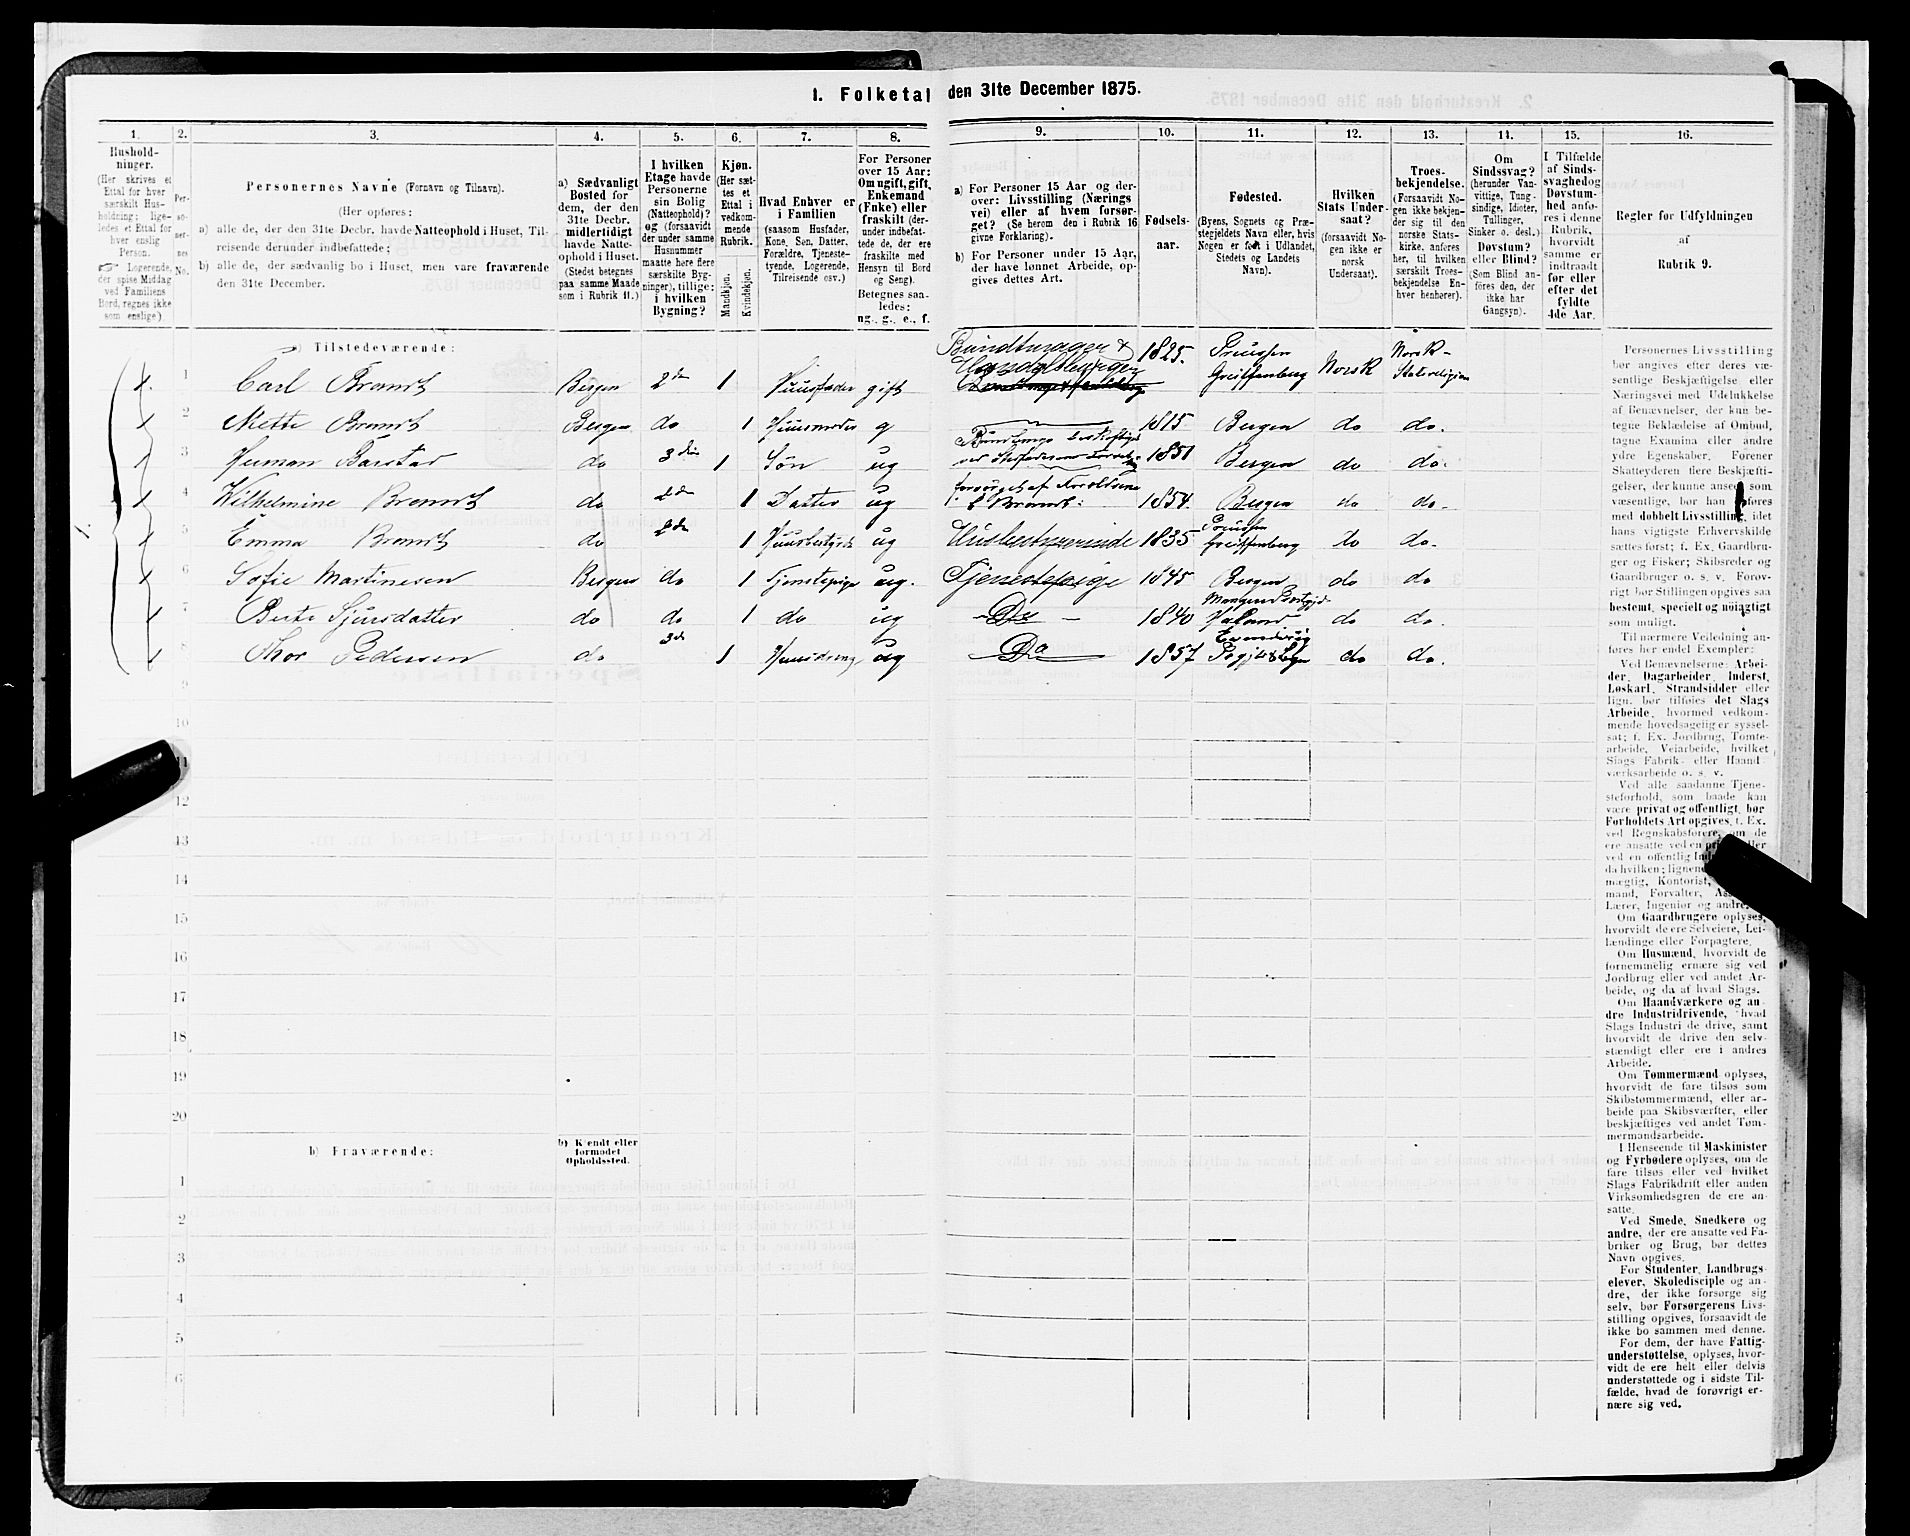 1. Folketal den 31te December 1875.
1.
2.
3.
4.
5.
6.
7.
8.
9.
10.
11.
12.
13.
14.
15.
16.
Hushold-
ninger.
(Her skrives et
Ettal for hver
særskilt Hus-
holdning; lige-
ledes et Ettal for
hver enslig
Person.
☞ Logerende,
der spise Middag
ved Familiens
Bord, regnes ikke
som enslige).
Per-
so-
ner-
nes
No.
Personernes Navne (Fornavn og Tilnavn).
(Her opføres:
a) alle de, der den 31te Decbr. havde Natteophold i Huset, Til-
reisende derunder indbefattede;
b) alle de, der sædvanlig bo i Huset, men vare fraværende
den 31te December.
a) Sædvanligt
Bosted for
dem, der den
31te Decbr.
midlertidigt
havde Natte-
ophold i Huset.
(Stedet betegnes
paa samme Maade
som i Rubrik 11.)
I hvilken
Etage havde
Personerne
sin Bolig
(Natteophold)?
og (forsaavidt
der under samme
Husnummer
maatte høre flere
særskilte Byg-
ninger), tillige:
i hvilken
Bygning?
Kjøn.
(Her sæt-
tes et
Ettal i
vedkom-
mende
Rubrik.
Mandkjøn.
Kvindekjøn.
Hvad Enhver er
i Familien
(saasom Husfader,
Kone, Søn, Datter,
Forældre, Tjeneste-
tyende, Logerende,
Tilreisende osv.)
For Personer
over 15 Aar:
Om ugift, gift,
Enkemand
(Enke) eller
fraskilt (der-
under indbefat-
tede de, der ere
fraskilte med
Hensyn til Bord
og Seng).
Betegnes saa-
ledes:
ug., g., e., f.
a) For Personer 15 Aar og der-
over: Livsstilling (Nærings
vei) eller af hvem forsør-
get? (Se herom den i Rubrik 16
givne Forklaring).
b) For Personer under 15 Aar,
der have lønnet Arbeide, op-
gives dettes Art.
Fødsels-
aar.
Fødested.
(Byens, Sognets og Præ-
stegjeldets Navn eller, hvis
Nogen er født i Udlandet,
Stedets og Landets
Navn).
Hvilken
Stats Under-
saat?
(forsaavidt No-
gen ikke er
norsk
Undersaat).
Troes-
bekjendelse.
(Forsaavidt No-
gen ikke bekjen-
der sig til den
norske Stats-
kirke, anføres
her, til hvilken
særskilt Troes-
bekjendelse En-
hver henhører).
Om
Sindssvag?
(herunder Van-
vittige, Tung-
sindige, Idioter,
Tullinger,
Sinker o. desl.)
Døvstum?
eller Blind?
(Som Blind an-
føres den, der
ikke har
Gangsyn).
I Tilfælde
af Sinds-
svaghed og
Døvstum-
hed anfø-
res i denne
Rubrik,
hvorvidt
samme er
indtraadt
før eller
efter det
fyldte
4de Aar.
Regler før Udfyldningen
af
Rubrik 9.
a) Tilstedeværende:
1 Carl Brandt Bergen 2den 1 Huusfader gift Bundtmager & Handelsborger 1825. Preussen Greiffenberg Norsk Norsk Statsreligion
2 Mette Brandt Bergen do 1 Huusmoder g 1815 Bergen do do.
3 Herman Barstad do 3die 1 Søn ug 1851 Bergen do do.
4 Wilhelmine Brandt do 2de 1 Datter ug forsørget af Forældrene C Brandt 1854. Bergen do do.
5 Emma Brandt do 2de 1 ug Husbestyrerinde 1835 Preussen Greiffenberg do do.
6 Sofie Martinesen Bergen do 1 Tjenstepige ug. Tjenestepige 1845 Bergen do do
7 Berte Sjursdatter do do 1 do ug Do 1840 Manger do do.
8 Thor Pedersen do 3de 1 Huusdreng ug Do 1857 do do.
9
10
11
12
13
14
15
16
17
18
19
20
b) Fraværende:
b) Kjendt eller
formodet
Opholdssted.
1
2
3
4
5
6
Personernes Livsstilling
bør angives efter deres væ-
sentlige Beskjæftigelse eller
Næringsvei med Udelukkelse
af Benævnelser, der kun be-
tegne Beklædelse af Ombud,
tagne Examina eller andre
ydre Egenskaber. Forener
Skatteyderen flere Beskjæfti-
gelser, der kunne ansees som
væsentlige, bør han opføres
med dobbelt Livsstilling, idet
hans vigtigste Erhvervskilde
sættes først; f. Ex. Gaardbru-
ger og Fisker; Skibsreder og
Gaardbruger o. s. v. Forøv-
rigt bør Stillingen opgives saa
bestemt, specielt og nøiagtigt
som muligt.
Til nærmere Veiledning an-
føres her endel Exempler:
Ved Benævnelserne: Arbei-
der, Dagarbeider, Inderst,
Løskarl, Strandsidder eller
lign. bør tilføies det Slags
Arbeide, hvormed vedkom-
mende hovedsagelig er syssel-
sat; f. Ex. Jordbrug, Tomte-
arbeide, Veiarbeide, hvilket
Slags Fabrik- eller Haand-
værksarbeide o. s. v.
Ved alle saadanne Tjene-
steforhold, som baade kan
være privat og offentligt, bør
Forholdets Art opgives, f. Ex.
ved Regnskabsførere, om de
ere ansatte ved en
ved en offentlig
da hvilken;
mægtig, Kontorist,
mand, Forvalter,
Lærer, Ingeniør og andre.
Om Gaardbrugere oplyses,
hvorvidt de ere Selveiere, Lei-
lændinge eller Forpagtere.
Om Husmænd, hvorvidt de
fornemmelig ernære sig ved
Jordbrug eller ved andet Ar-
beide, og da af hvad Slags.
Om Haandværkere og an-
dre Industridrivende, hvad
Slags Industri de drive, samt
hvorvidt de drive den selv-
stændigt eller ere i andres
Arbeide.
Om Tømmermænd oplyses,
hvorvidt de fare tilsøs som
Skibstømmermænd, eller ar-
beide paa Skibsværfter, eller
beskjæftiges ved andet Tøm-
mermandsarbeide.
I Henseende til Maskinister
og Fyrbødere oplyses, om de
fare tilsøs eller ved hvilket
Slags Fabrikdrift eller anden
Virksomhedsgren de ere an-
satte.
Ved Smede, Snedkere og
andre, der ere ansatte ved Fa-
briker og Brug, bør dettes
Navn opgives.
For Studenter, Landbrugs-
elever, Skoledisciple og an-
dre, der ikke forsørge sig
selv, bør Forsørgerens Livs-
stilling opgives, forsaavidt de
ikke bo sammen med denne.
For dem, der have Fattig-
understøttelse, oplyses, hvor-
vidt de ere helt eller delvis
understøttede og i sidste Til-
fælde, hvad de forøvrigt er-
nære sig ved.